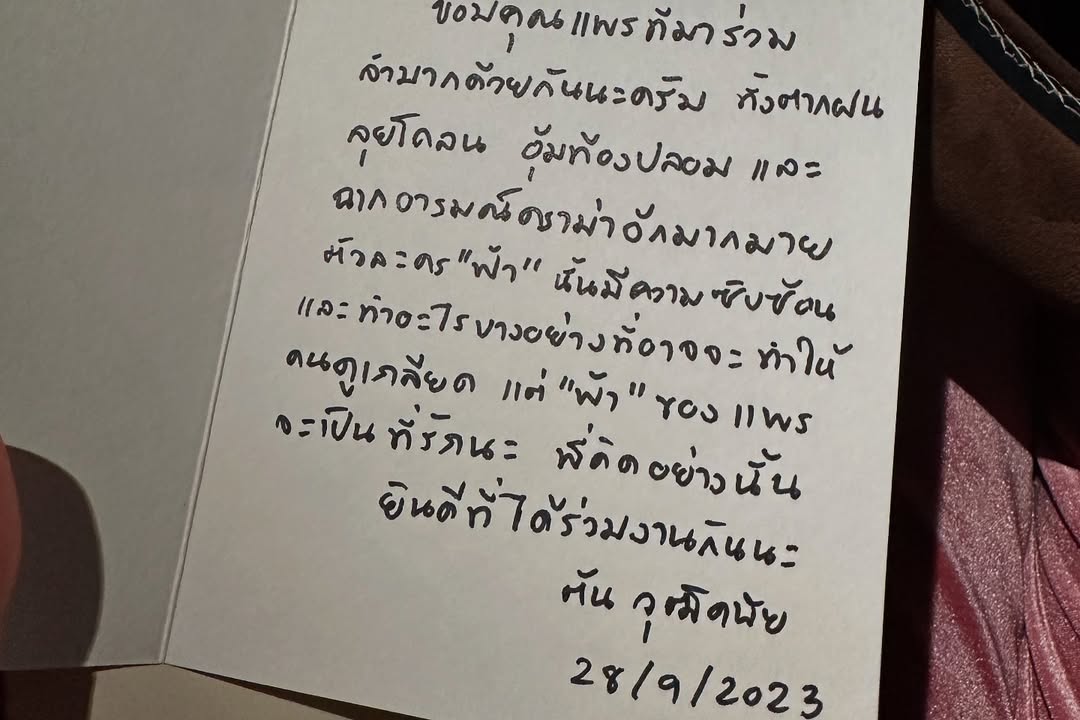 ขอบคุณแพรที่มาร่วม
ลำบากด้วยกันนะครับ ทั้งตากฝน
ลุยโคลน อุ้มท้องปลอม และ
ฉากอารมณ์ดราม่าอีกมากมาย
ตัวละคร "ฟ้า" นั้นมีความซับซ้อน
และทำอะไรบางอย่างที่อาจจะ ทำให้
คนดูเกลียด แต่ "ฟ้า" ของ แพร
จะเป็นที่รักนะ พี่คิดอย่างนั้น
ยินดีที่ได้ร่วมงานกันนะ
ตัน วุฒิดนัย
28/9/2023